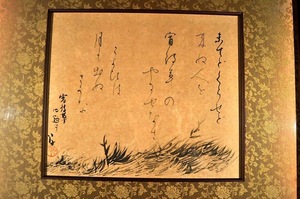 まてどくらせど
来ぬ人を
宵待草の
やるせなさ
こよひは
月も出ぬ
さうな
宵待草